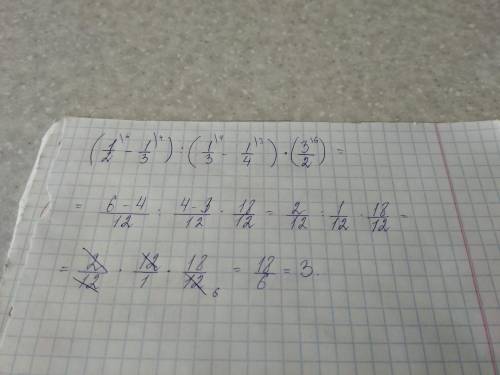 (1/2 \6 - 1/3 \4) : (1/3 \4 - 1/4 \3) · (3/2 \6) =
= 6-4/12 : 4-3/12 · 18/12 = 2/12 : 1/12 · 18/12 =
= 2/12 · 12/1 · 18/12 6 = 18/6 = 3.